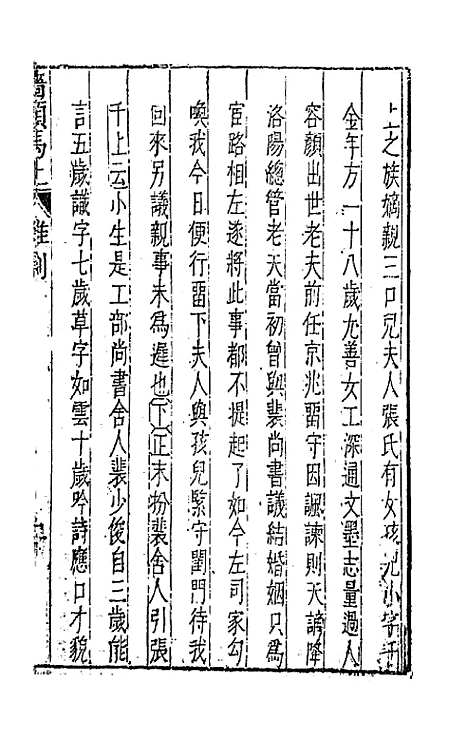 上之族嫡親三口兒夫人張氏有女孩兒小字千
金年方一十八歲尤善女工深通文墨志量過人
容顏出世老夫前任京兆畱守因諷諫則天謫降
洛陽總管老夫當初曾與裴尚書議結婚姻只為
宦路相左遂將此事都不提起了如今左司家勾
喚我今日便行畱下夫人與孩兒緊守閨門待我
回來另議親事未為遲也下正末扮裴舍人引張
千上云小生是工部尚書舍人裴少俊自三歲能
言五歲識字七歲草字如雲十歲吟詩應口才貌
牆頭馬上 雜劇